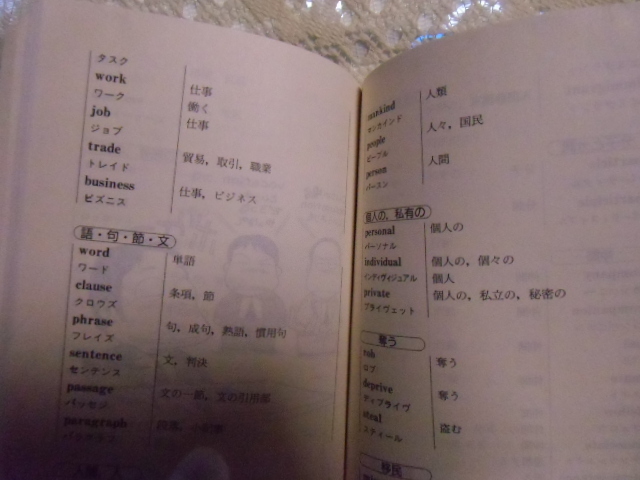 タスク
work 仕事
ワーク 働く
job 仕事
ジョブ
trade 貿易，取引，職業
トレイド
business 仕事，ビジネス
ビズニス
語・句・節・文
word 単語
ワード
clause 条項，節
クロウズ
phrase 句，成句，熟語，慣用句
フレイズ
sentence 文，判決
センテンス
passage 文の一節，文の引用部
パッセジ
paragraph
mankind 人類
マンカインド
people 人々，国民
ピープル
person 人間
パースン
個人の，私有の
personal 個人の
パーソナル
individual 個人の，個々の
インディヴィジュアル 個人
private 個人の，私立の，秘密の
プライヴェット
奪う
rob 奪う
ロブ
deprive 奪う
ディプライヴ
steal 盗む
スティール
移民